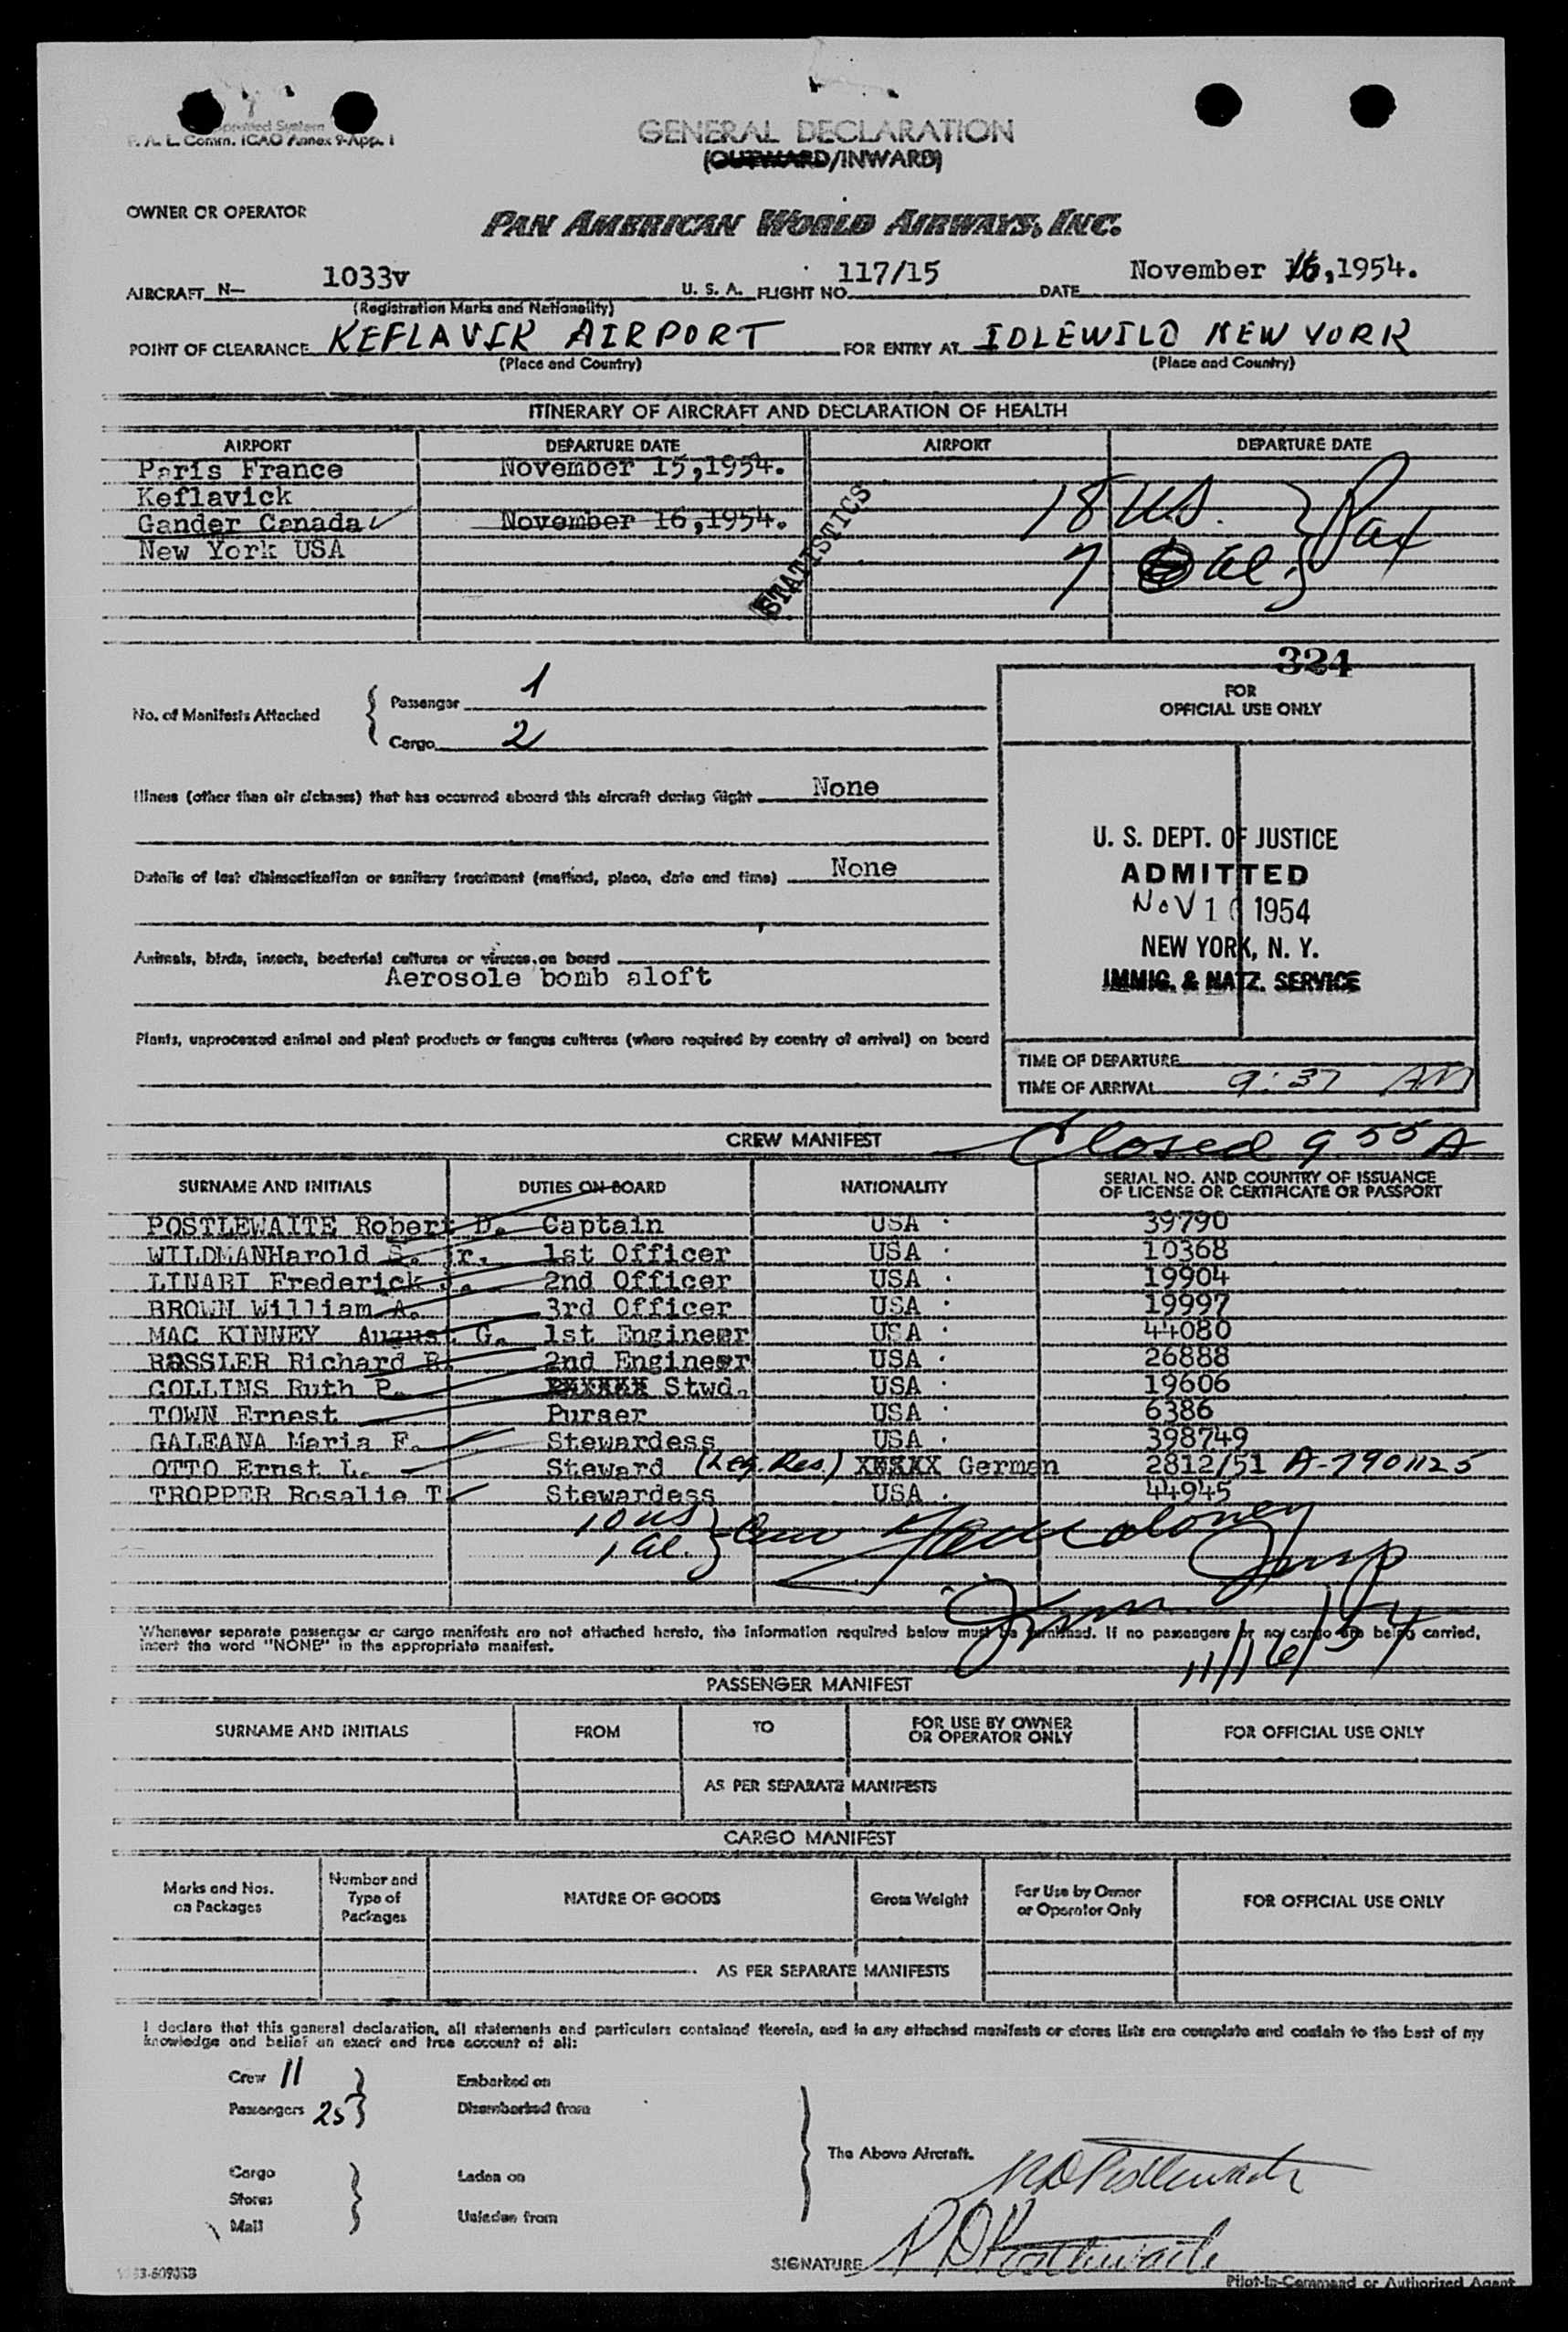 F. A. L. Comm. ICAO Annex 9-App. 1
GENERAL DECLARATION
(OUTWARD/INWARD)
OWNER OR OPERATOR
PAN AMERICAN WORLD AIRWAYS, INC.
AIRCRAFT N- 1033v U. S. A. FLIGHT NO. 117/15 DATE November 16,1954.
(Registration Marks and Nationality)
POINT OF CLEARANCE KEFLAVIK AIRPORT FOR ENTRY AT IDLEWILD NEW YORK
(Place and Country) (Place and Country)
ITINERARY OF AIRCRAFT AND DECLARATION OF HEALTH
AIRPORT DEPARTURE DATE AIRPORT DEPARTURE DATE
Paris France November 15,1954.
Keflavick
Gander Canada November 16,1954.
New York USA
STATISTICS
18 US. } Pax
7 al.
324
No. of Manifests Attached { Passenger 1
Cargo 2
FOR
OFFICIAL USE ONLY
Illness (other than air sickness) that has occurred aboard this aircraft during flight None
Details of last disinsectization or sanitary treatment (method, place, date and time) None
Animals, birds, insects, bacterial cultures or viruses, on board
Aerosole bomb aloft
Plants, unprocessed animal and plant products or fungus cultures (where required by country of arrival) on board
U. S. DEPT. OF JUSTICE
ADMITTED
NOV 16 1954
NEW YORK, N. Y.
IMMIG. & NATZ. SERVICE
TIME OF DEPARTURE
TIME OF ARRIVAL 9:37 AM
CREW MANIFEST Closed 9 55 A
SURNAME AND INITIALS DUTIES ON BOARD NATIONALITY SERIAL NO. AND COUNTRY OF ISSUANCE
OF LICENSE OR CERTIFICATE OR PASSPORT
POSTLEWAITE Robert D. Captain USA 39790
WILDMANHarold S. Jr. 1st Officer USA 10368
LINARI Frederick J. 2nd Officer USA 19904
BROWN William A. 3rd Officer USA 19997
MAC KINNEY August G. 1st Engineer USA 44080
ROSSLER Richard B. 2nd Engineer USA 26888
COLLINS Ruth P. XXXXXX Stwd. USA 19606
TOWN Ernest Purser USA 6386
GALEANA Maria F. Stewardess USA 398749
OTTO Ernst L. Steward (Leg. Res.) XXXXX German 2812/51 A-7901125
TROPPER Rosalie T Stewardess USA 44945
10 US } Crew
1 al.
11/16/54
Whenever separate passenger or cargo manifests are not attached hereto, the information required below must be furnished. If no passengers or no cargo are being carried,
insert the word "NONE" in the appropriate manifest.
PASSENGER MANIFEST
SURNAME AND INITIALS FROM TO FOR USE BY OWNER
OR OPERATOR ONLY FOR OFFICIAL USE ONLY
AS PER SEPARATE MANIFESTS
CARGO MANIFEST
Marks and Nos.
on Packages Number and
Type of
Packages NATURE OF GOODS Gross Weight For Use by Owner
or Operator Only FOR OFFICIAL USE ONLY
AS PER SEPARATE MANIFESTS
I declare that this general declaration, all statements and particulars contained therein, and in any attached manifests or stores lists are complete and contain to the best of my
knowledge and belief an exact and true account of all:
Crew 11
Passengers 25
Embarked on
Disembarked from
Cargo
Stores
Mail
Laden on
Unladen from
The Above Aircraft. R D Postlewaite
SIGNATURE R D Postlewaite
Pilot-In-Command or Authorized Agent